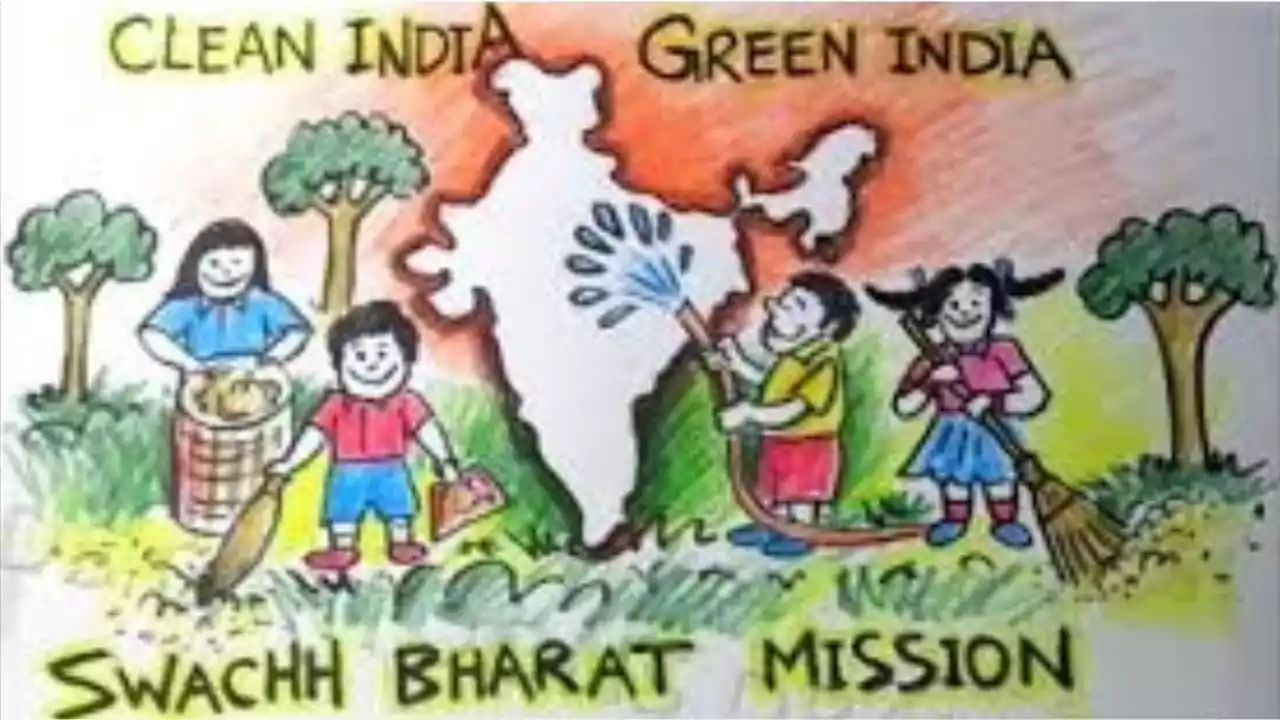 CLEAN INDIA GREEN INDIA
SWACHH BHARAT MISSION